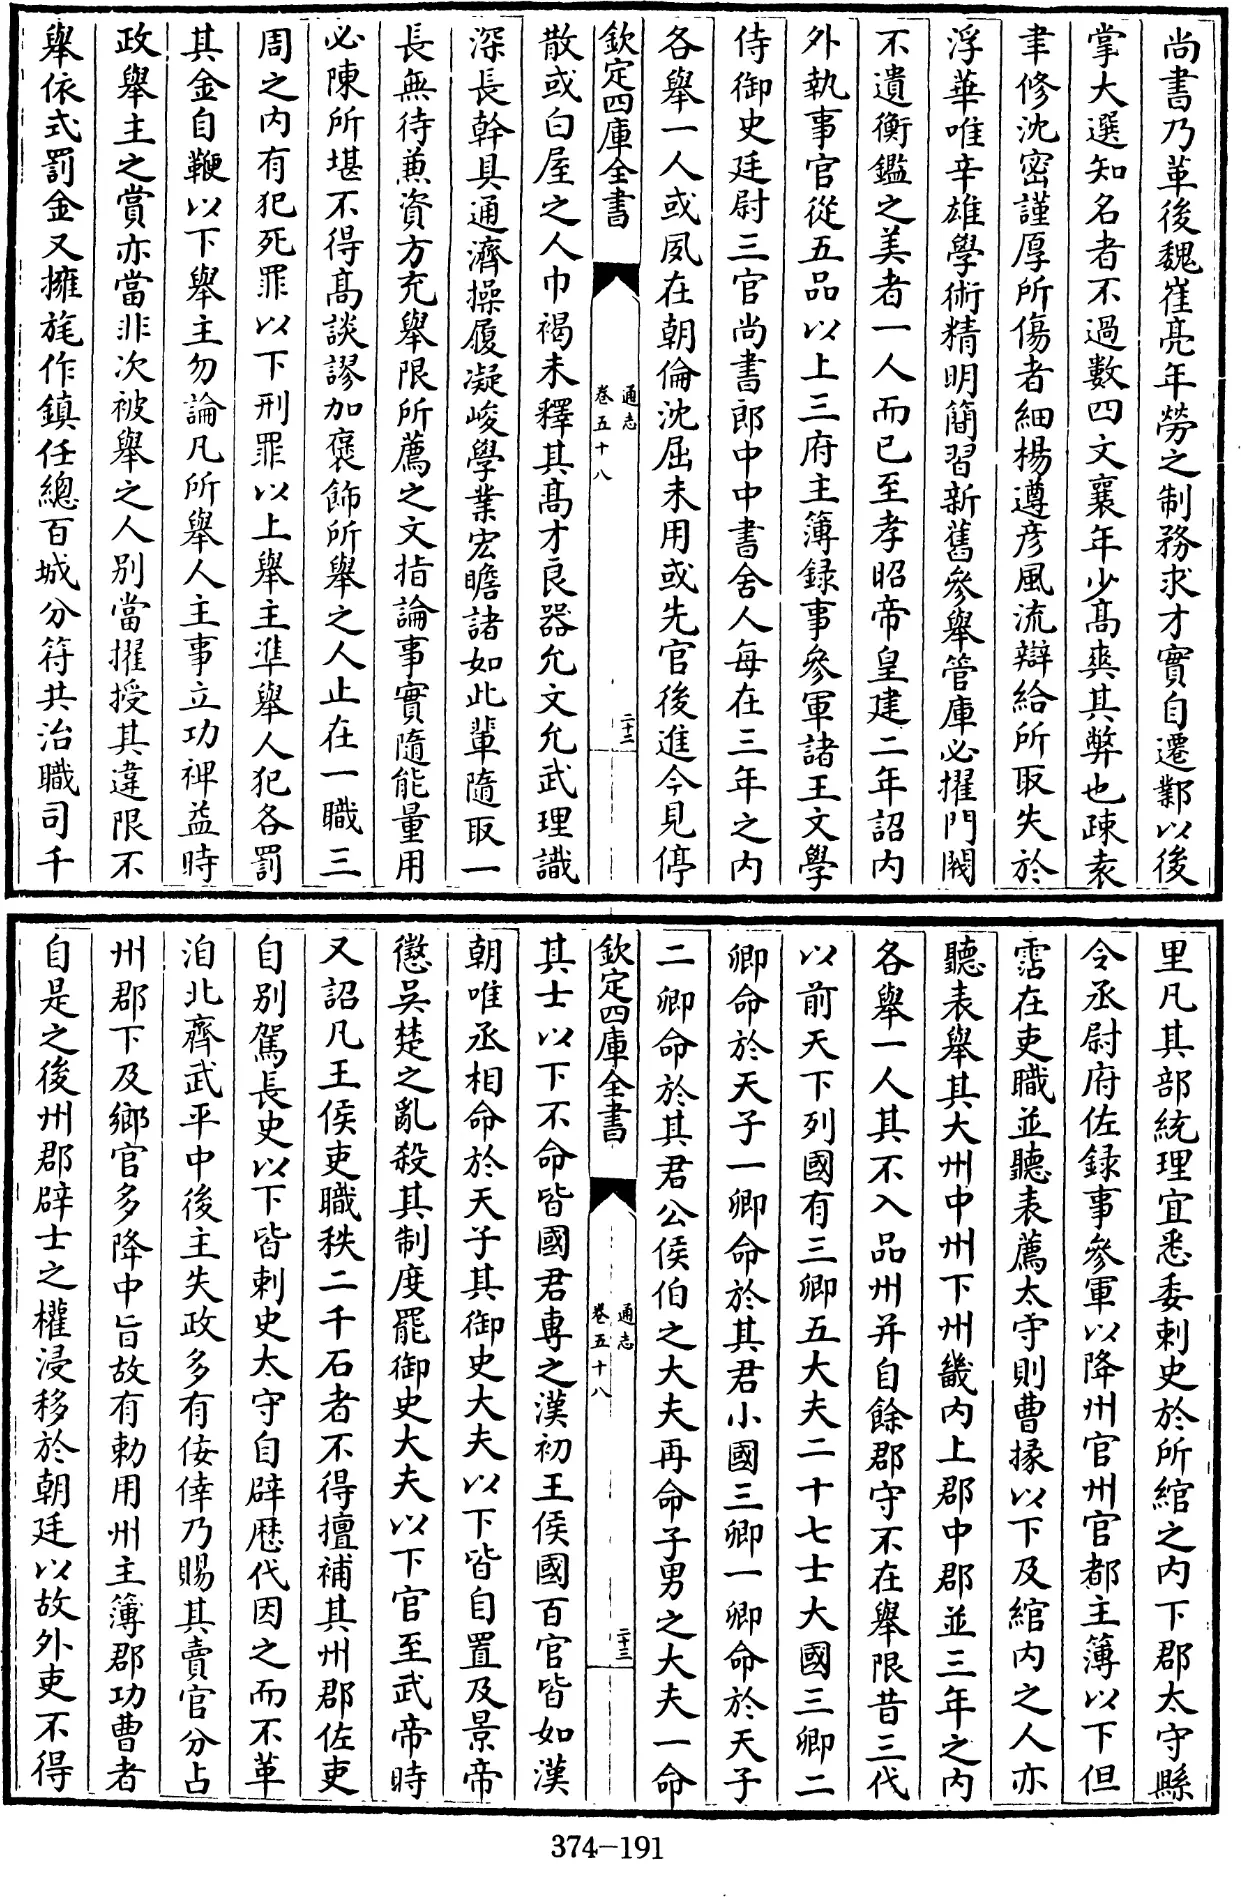 尚書乃革後魏崔亮年勞之制務求才實自遷鄴以後
掌大選知名者不過數四文襄年少高爽其弊也疎袁
聿修沈密謹厚所傷者細楊遵彥風流辯給所取失於
浮華唯辛雄學術精明簡習新舊參舉管庫必擢門閥
不遺衡鑑之美者一人而已至孝昭帝皇建二年詔內
外執事官從五品以上三府主簿録事參軍諸王文學
侍御史廷尉三官尚書郎中中書舍人每在三年之內
各舉一人或夙在朝倫沈屈未用或先官後進今見停
欽定四庫全書
通志
卷五十八
二十二
散或白屋之人巾褐未釋其高才良器允文允武理識
深長幹具通濟操履凝峻學業宏瞻諸如此輩隨取一
長無待兼資方充舉限所薦之文指論事實隨能量用
必陳所堪不得高談謬加褒飾所舉之人止在一職三
周之內有犯死罪以下刑罪以上舉主準舉人犯各罰
其金自鞭以下舉主勿論凡所舉人主事立功裨益時
政舉主之賞亦當非次被舉之人別當擢授其違限不
舉依式罰金又擁旄作鎮任總百城分符共治職司千
里凡其部統理宜悉委刺史於所綰之內下郡太守縣
令丞尉府佐録事參軍以降州官州官都主簿以下但
霑在吏職並聽表薦太守則曹掾以下及綰內之人亦
聽表舉其大州中州下州畿內上郡中郡並三年之內
各舉一人其不入品州并自餘郡守不在舉限昔三代
以前天下列國有三卿五大夫二十七士大國三卿二
卿命於天子一卿命於其君小國三卿一卿命於天子
二卿命於其君公侯伯之大夫再命子男之大夫一命
欽定四庫全書
通志
卷五十八
二十三
其士以下不命皆國君專之漢初王侯國百官皆如漢
朝唯丞相命於天子其御史大夫以下皆自置及景帝
懲吳楚之亂殺其制度罷御史大夫以下官至武帝時
又詔凡王侯吏職秩二千石者不得擅補其州郡佐吏
自別駕長史以下皆刺史太守自辟歷代因之而不革
洎北齊武平中後主失政多有佞倖乃賜其賣官分占
州郡下及鄉官多降中旨故有勅用州主簿郡功曹者
自是之後州郡辟士之權浸移於朝廷以故外吏不得
374-191